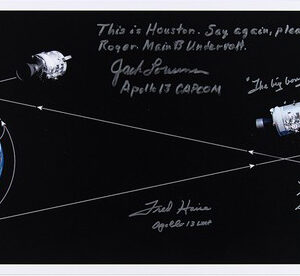 This is Houston. Say again, plea
Roger. Main B Undervolt.
Jack Lousma
Apollo 13 CAPCOM
"The big
Fred Haise
Apollo 13 LMP